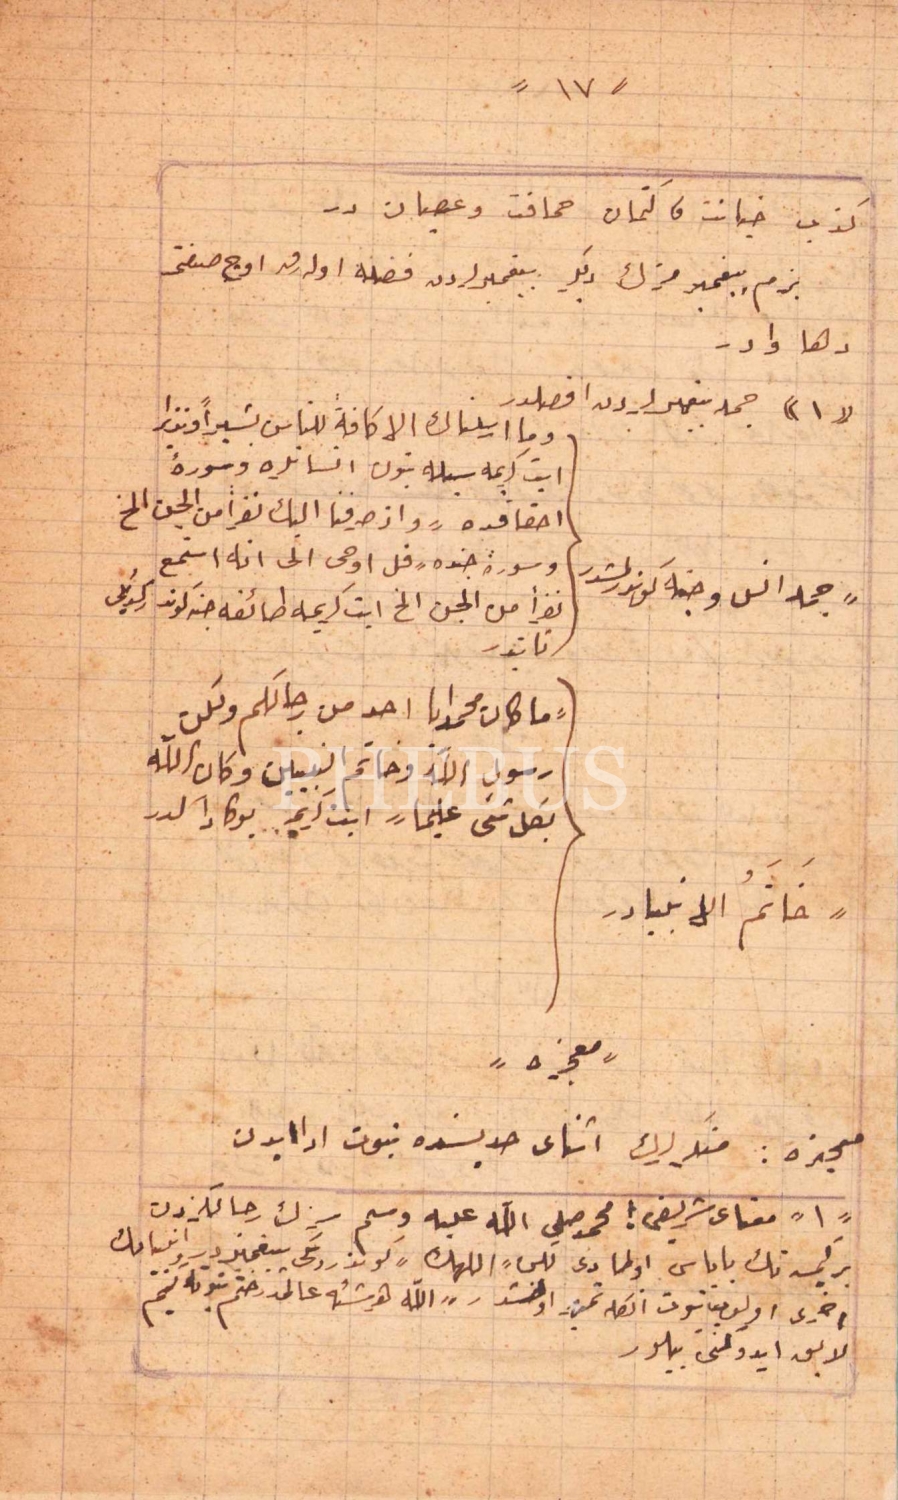 « ١٧ »
كذب خيانت كتمان حماقت وعصيان در
بزم پيغمبرمزك ديكر پيغمبرلردن فضله اوله رق اوچ صفتى
دها واردر
« ١ » جمله پيغمبرلردن افضلدر
« جمله انس وجنه كوندرلمشدر
وما ارسلناك الا كافةً للناس بشيراً ونذيرا
ايت كريمه سيله بتون انسانلره وسورۀ
احقافده « واذ صرفنا اليك نفراً من الجن الخ
وسورۀ جنده « قل اوحى الى انه استمع
نفراً من الجن الخ ايت كريمه طائفه جنه كوندرلديكى
ثابتدر
« خَاتَمُ الانبيادر
« ما كان محمد ابا احد من رجالكم ولكن
رسول الله وخاتم النبيين وكان الله
بكل شى عليما » ايت كريمه بوكا دالدر
« معجزه »
معجزه : منكرلرك اثناى حديسنده نبوت ادعا ايدن
« ١ » معناى شريفى : محمد صلى الله عليه وسلم سزك رجالكزدن
بر كيمسه نك باباسى اولمادى لكن اللهك كوندرديكى پيغمبريدر وانبيانك
اخرى اولوب نبوت انكله ختم اولمشدر » الله هر شئه عالمدر ختم نبوته كيم
لايق ايدوكنى بيلور
PHEBUS